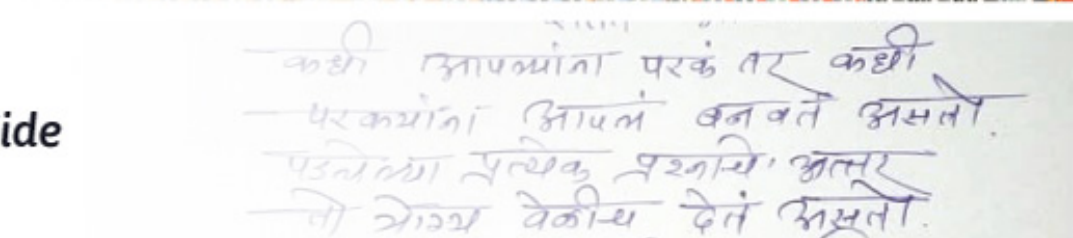 कधी आपल्यांना परकं तर कधी
ide
परक्यांना आपलं बनवत असतो.
पडलेल्या प्रत्येक प्रश्नाचे उत्तर
तो योग्य वेळीच देत असतो.